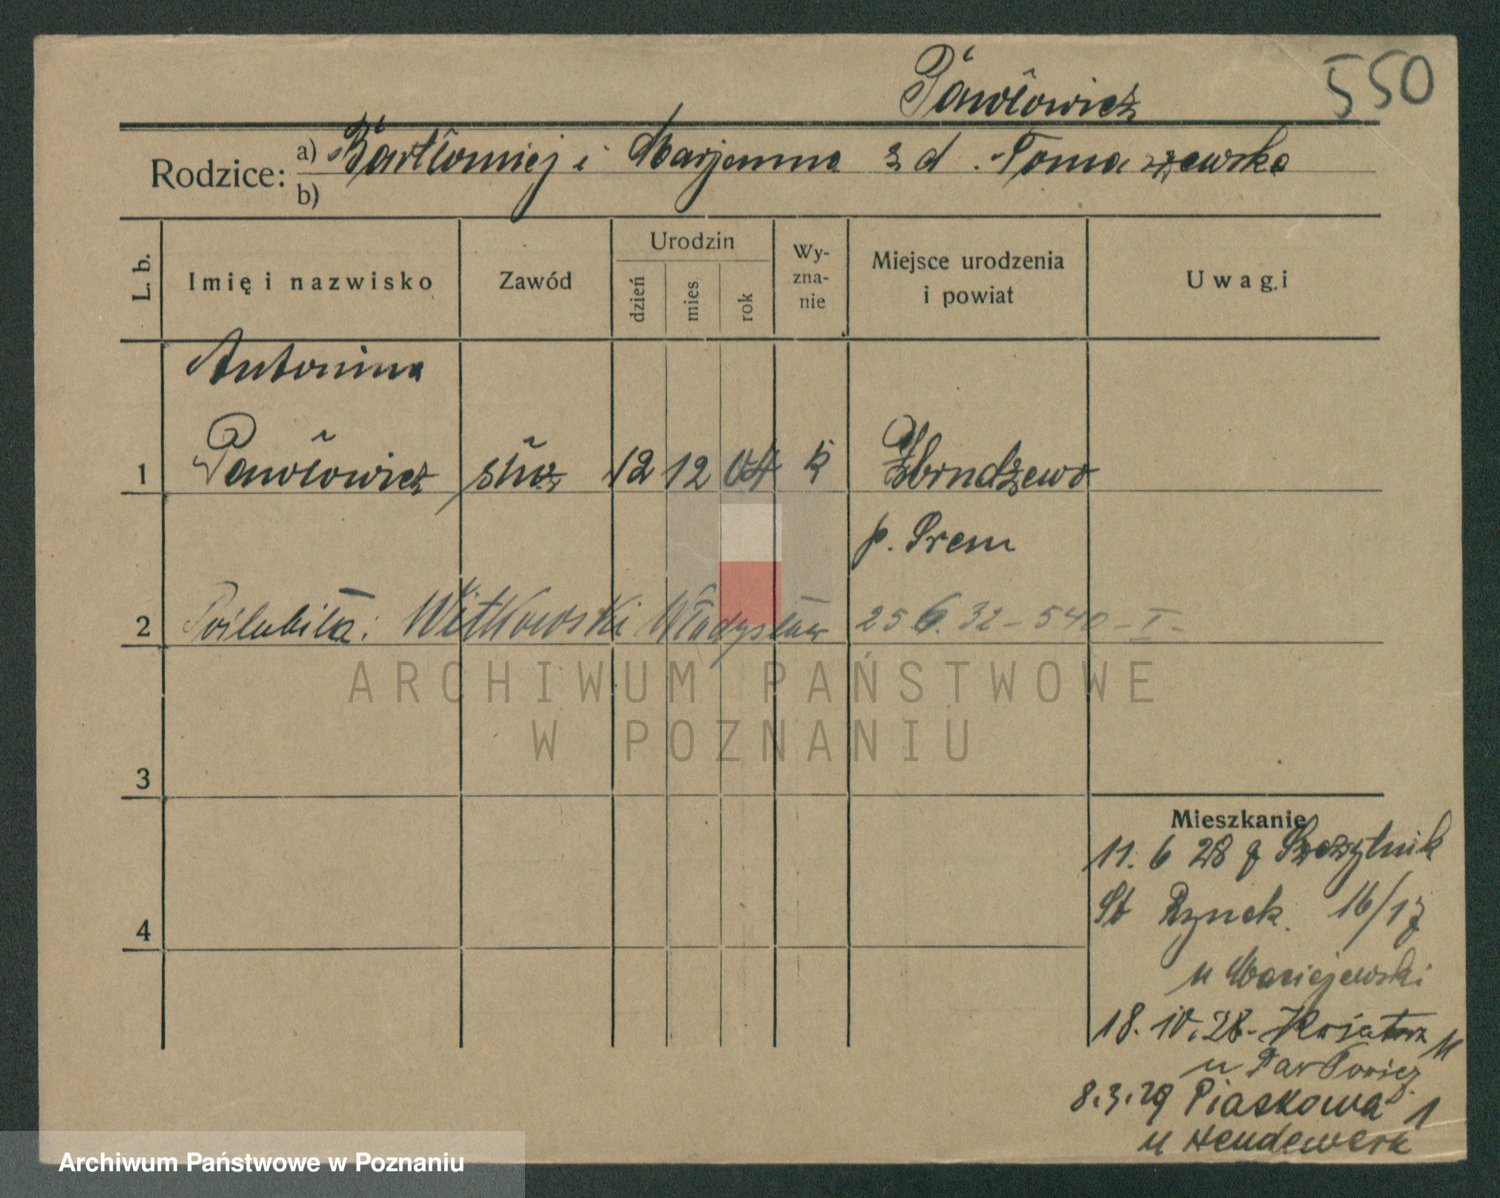 Pawłowicz 550
Rodzice: a) Bartłomiej i Marjanna z d. Tomaszewska
b)
L. b. Imię i nazwisko Zawód Urodzin dzień mies. rok Wy-zna-nie Miejsce urodzenia i powiat Uwagi
Antonina
1 Pawłowicz służ 12 12 04 k Zbrudzewo
p. Śrem
2 Poślubiła: Witkowski Władysław 25 6. 32 - 540 - I -
3
Mieszkanie
11. 6 28 z Szczytnik
St Rynek 16/17
4
u Maciejewski
18. IV. 28 -
u
8. 3. 29 Piaskowa 1
u Hendewerk
ARCHIWUM PAŃSTWOWE
W POZNANIU
Archiwum Państwowe w Poznaniu